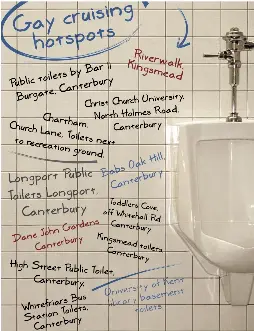 Gay cruising
hotspots
Riverwalk,
Kingsmead
Public toilets by Bar 11
Burgate, Canterbury
Christ Church University,
North Holmes Road,
Canterbury
Chartham,
Church Lane, Toilets next
to recreation ground.
Longport Public
Toilets Longport,
Canterbury
Babs Oak Hill,
Canterbury
Toddlers Cove,
off Whitehall Rd
Canterbury
Dane John Gardens
Canterbury
Kingsmead toilets,
Canterbury
High Street Public Toilet,
Canterbury,
University of Kent
library basement
toilets
Whitefriars Bus
Station Toilets,
Canterbury